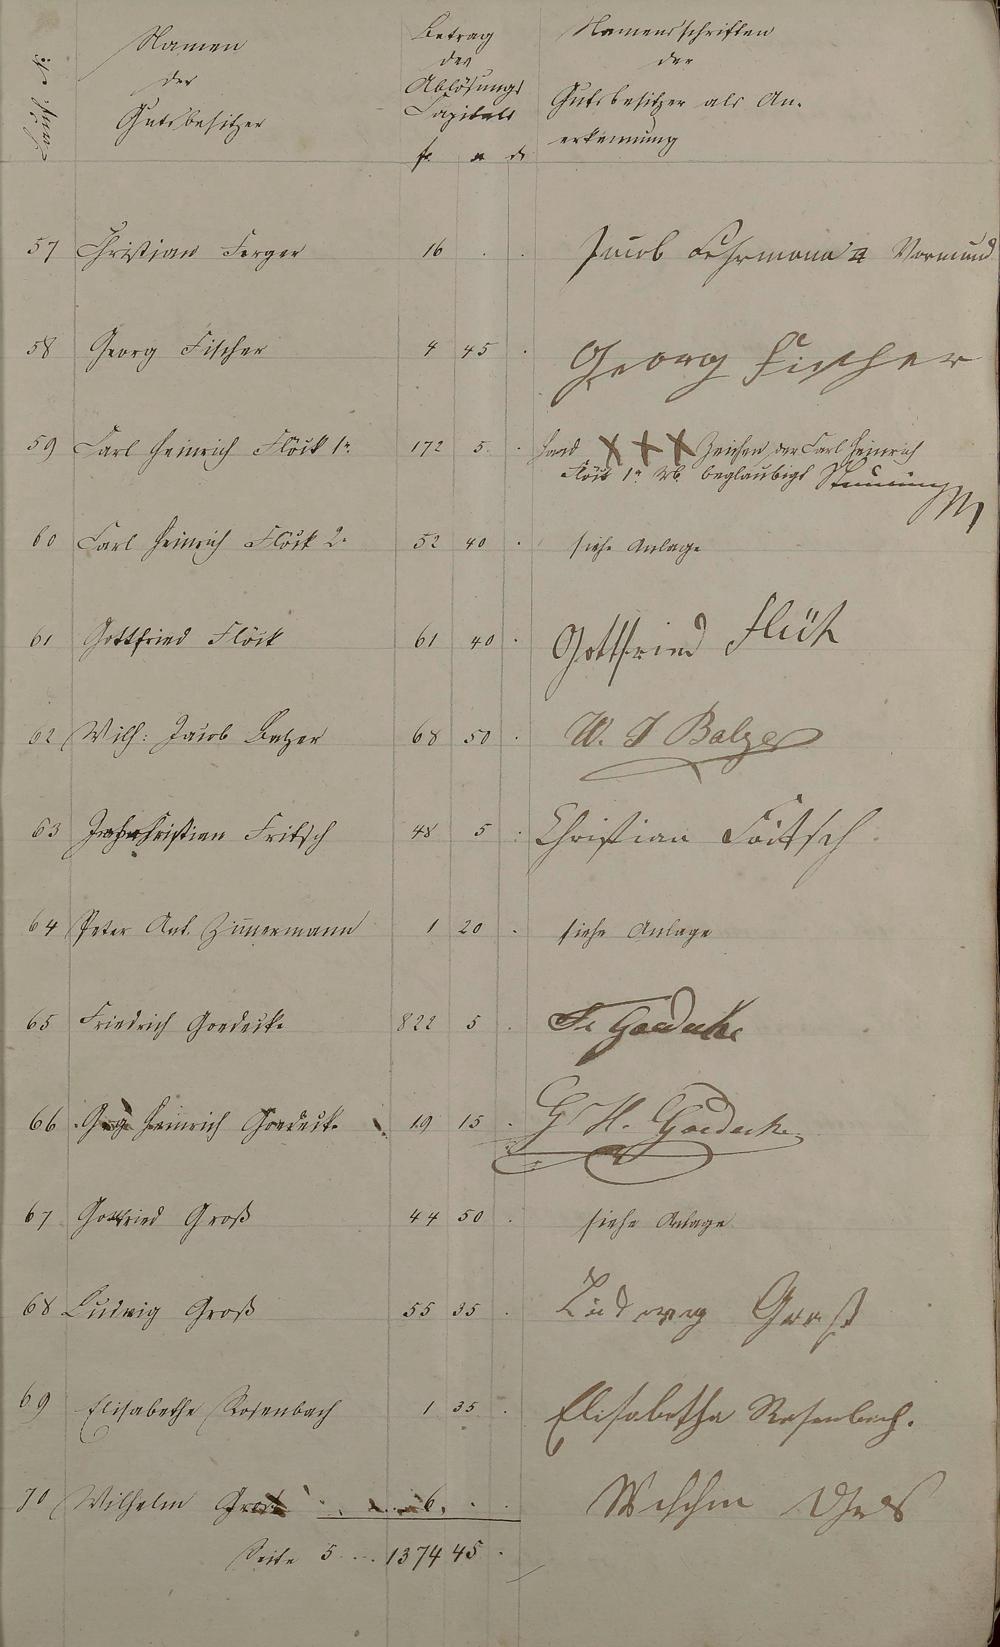 Namen
der
Gutsbesitzer
Betrag
des
Ablösungs
Capitals
Namensschriften
der
Gutsbesitzer als An-
erkennung
57 Christian Ferger 16 . . Jacob Fuhrmann II Vormund
58 Georg Fischer 4 45 . Georg Fischer
59 Carl Heinrich Flöck 1r 172 5 . Hand XXX Zeichen des Carl Heinrich
Flöck 1r beglaubigt
60 Carl Heinrich Flöck 2r 52 40 . siehe Anlage
61 Gottfried Flöck 61 40 . Gottfried Flück
62 Wilh: Jacob Balzer 68 50 . W. J Balzer
63 Christian Fritsch 48 5 . Christian Fritsch
64 Peter Ant. Zimmermann 1 20 . siehe Anlage
65 Friedrich Goedecke 822 5 . Fr Goedecke
66 Georg Heinrich Goedecke 19 15 . G H. Goedecke
67 Gottfried Groß 44 50 . siehe Anlage
68 Ludwig Groß 55 35 . Ludwig Groß
69 Elisabethe Rosenbach 1 35 . Elisabetha Rosenbach.
70 Wilhelm Groß 6 . . Wilhelm
Seite 5 .... 1374 45 .